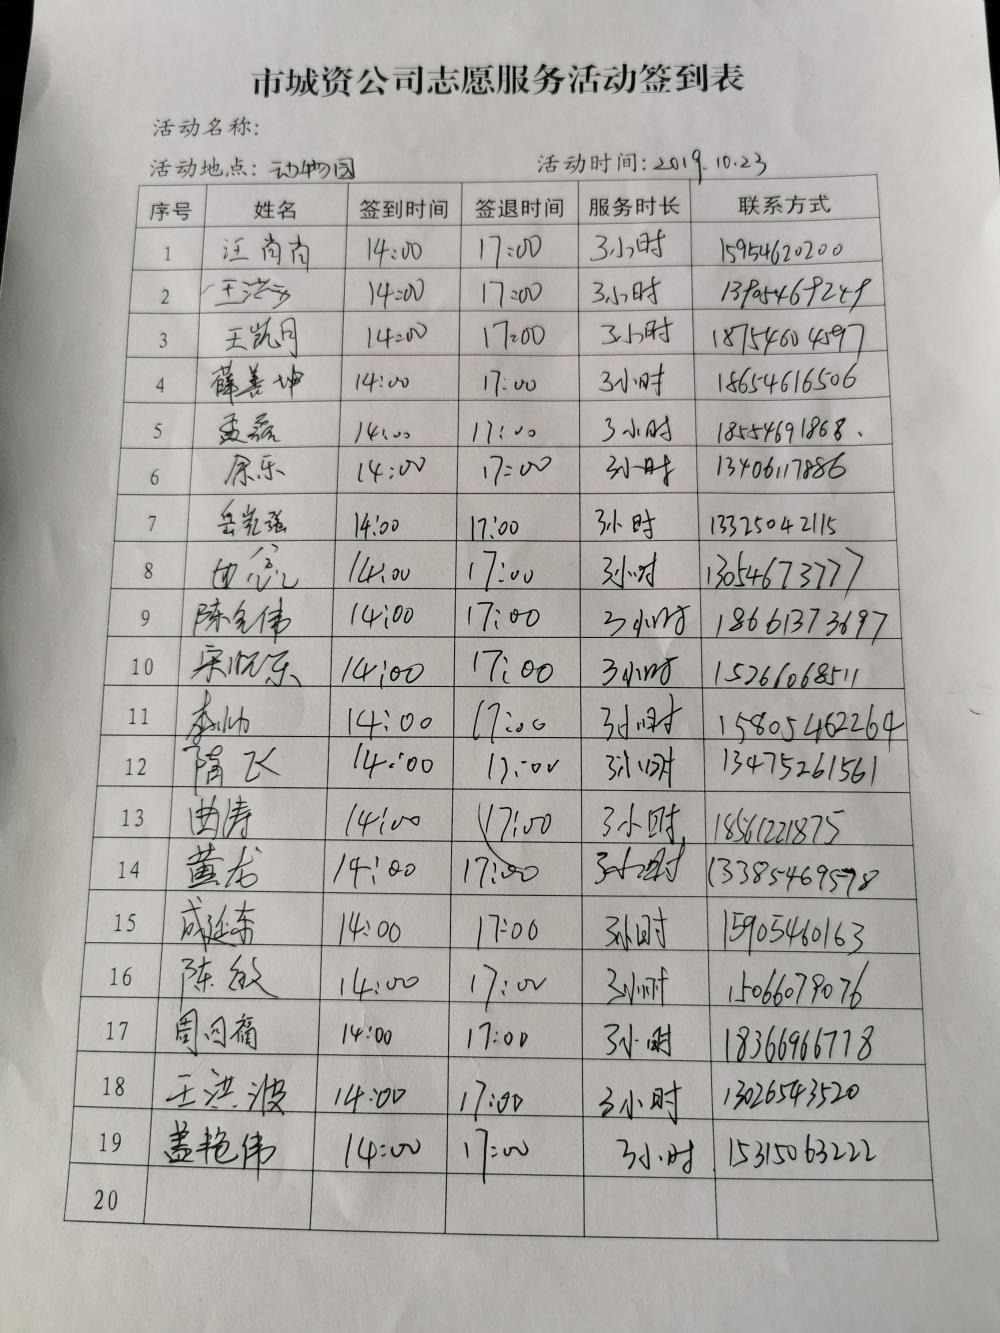 市城资公司志愿服务活动签到表
活动名称:
活动地点: 动物园 活动时间: 2019.10.23
序号 姓名 签到时间 签退时间 服务时长 联系方式
1 汪肖肖 14:00 17:00 3小时 15954620200
2 14:00 17:00 3小时 13905469249
3 王凯月 14:00 17:00 3小时 18754604597
4 薛善坤 14:00 17:00 3小时 18654616506
5 孟磊 14:00 17:00 3小时 18554691868.
6 14:00 17:00 3小时 13406117886
7 岳凯强 14:00 17:00 3小时 13325042115
8 14:00 17:00 3小时 13054673777
9 14:00 17:00 3小时 18661373697
10 14:00 17:00 3小时 15266068511
11 李帅 14:00 17:00 3小时 15805462264
12 隋飞 14:00 17:00 3小时 13475261561
13 曲涛 14:00 17:00 3小时 18561221875
14 黄龙 14:00 17:00 3小时 13385469578
15 成延东 14:00 17:00 3小时 15905460163
16 陈敏 14:00 17:00 3小时 15066079076
17 14:00 17:00 3小时 18366966778
18 王洪波 14:00 17:00 3小时 13026543520
19 盖艳伟 14:00 17:00 3小时 15315063222
20